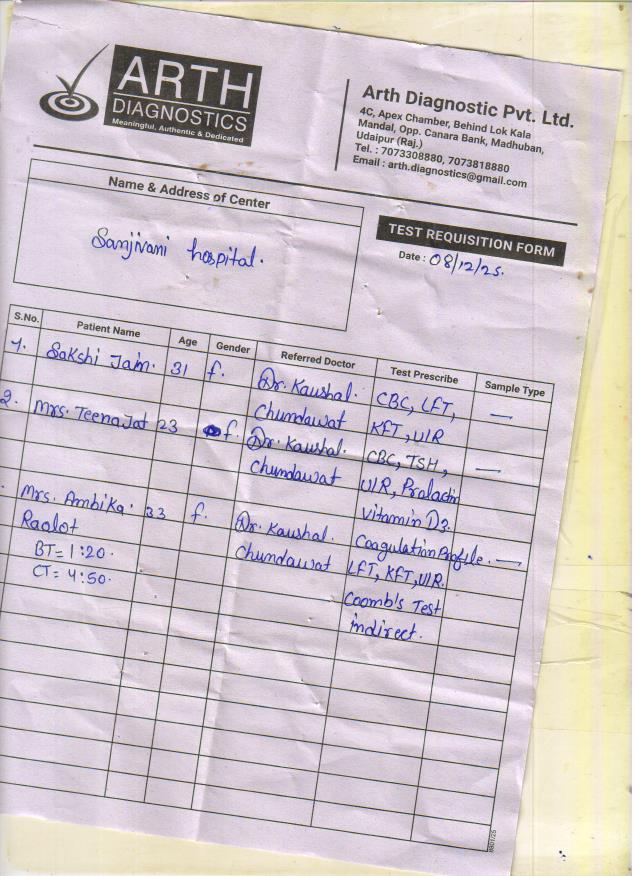 ARTH
DIAGNOSTICS
Meaningful, Authentic & Dedicated
Arth Diagnostic Pvt. Ltd.
4C, Apex Chamber, Behind Lok Kala
Mandal, Opp. Canara Bank, Madhuban,
Udaipur (Raj.)
Tel. : 7073308880, 7073818880
Email : arth.diagnostics@gmail.com
Name & Address of Center
Sanjivani hospital.
TEST REQUISITION FORM
Date : 08/12/25.
S.No. Patient Name Age Gender Referred Doctor Test Prescribe Sample Type
1. Sakshi Jain. 31 f. Dr. Kaushal. CBC, LFT, —
Chundawat KFT, U/R
2. Mrs. Teena Jat 23 f. Dr. Kaushal. CBC, TSH, —
Chundawat U/R, Prolactin
Vitamin D3.
Mrs. Ambika. 33 f. Dr. Kaushal. Coagulation Profile. —
Raolot Chundawat LFT, KFT, U/R.
BT = 1:20. Coomb's Test
CT = 4:50. indirect.